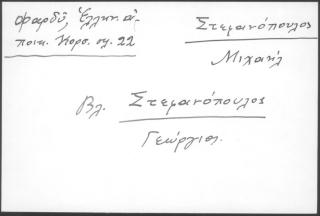 Φαρδύ, Ἑλλην. ἀ-
ποικ. Κορσ. σελ. 22
Στεφανόπουλος
Μιχαήλ
Βλ. Στεφανόπουλος
Γεώργιος.